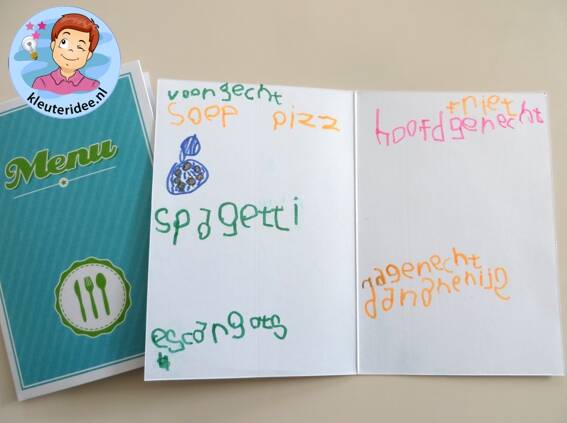 kleuteridee.nl
Menu
voongecht
soep pizz
spagetti
escangots
fniet
hoofdgenecht
nagenecht